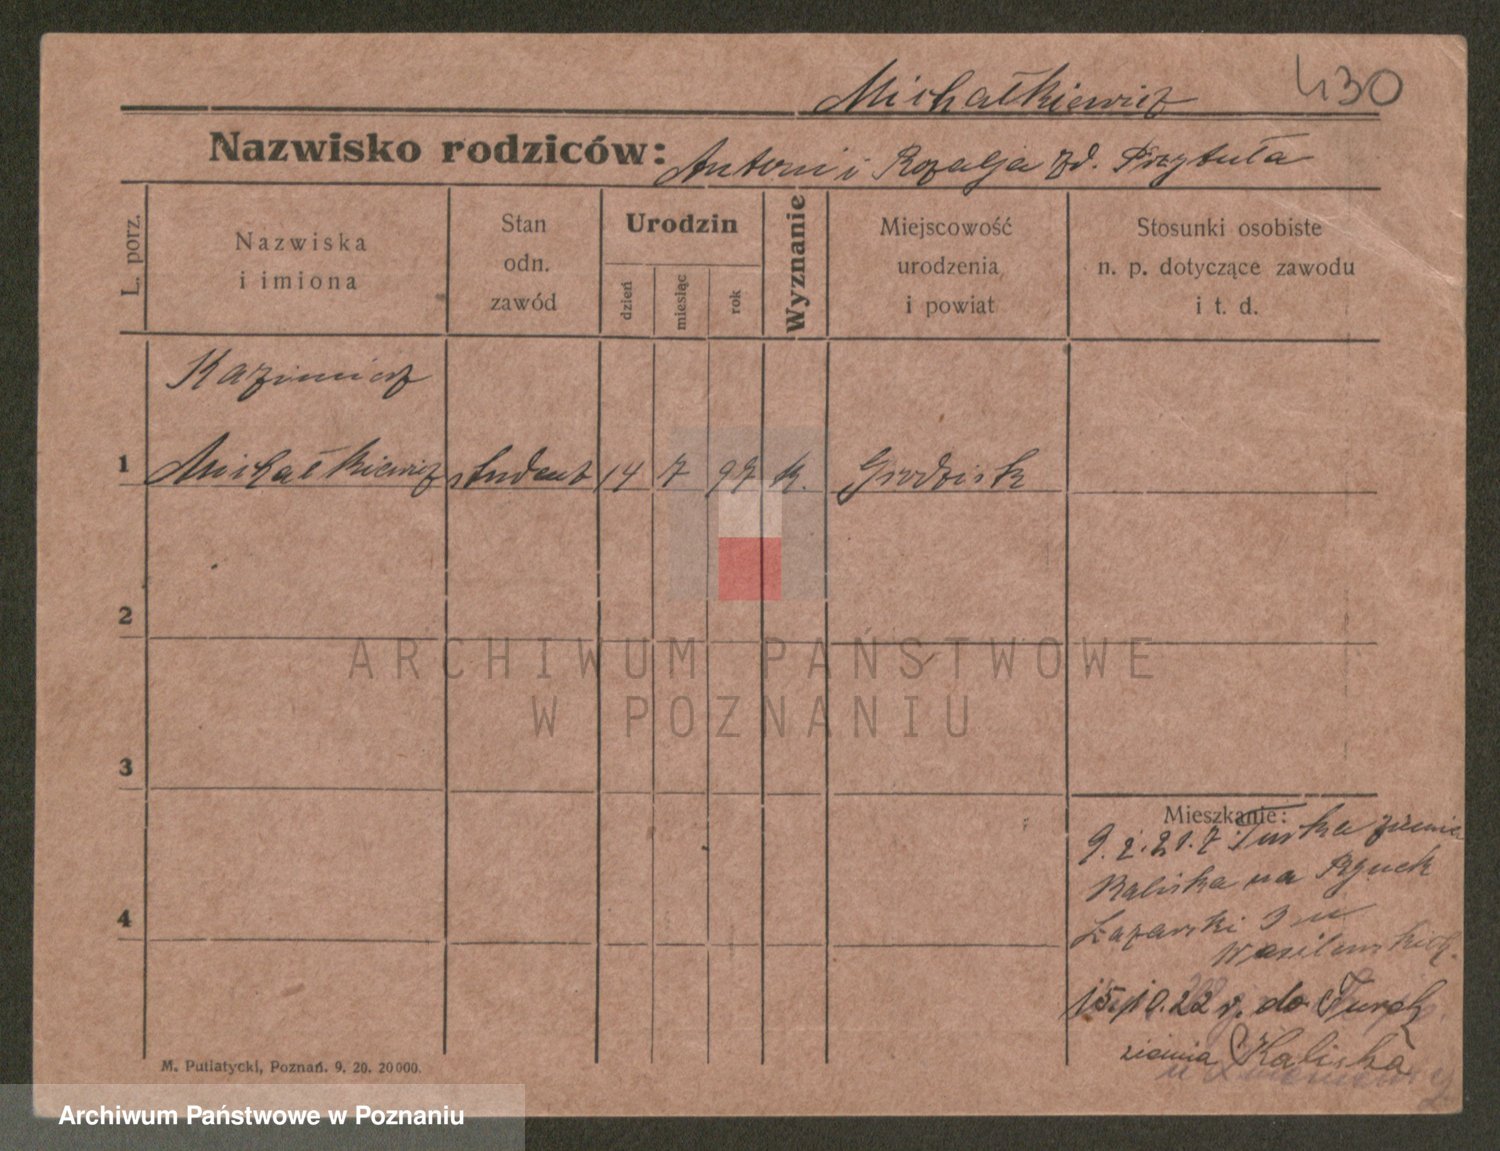 430
Michałkiewicz
Nazwisko rodziców: Antoni i Rozalja zd. Przytuła
L. porz.
Nazwiska
i imiona
Stan
odn.
zawód
Urodzin
dzień
miesiąc
rok
Wyznanie
Miejscowość
urodzenia
i powiat
Stosunki osobiste
n. p. dotyczące zawodu
i t. d.
Kazimierz
1 Michałkiewicz student 14 7 97 k. Grodzisk
2
3
4
Mieszkanie:
9.2.21. z Turka ziemia
Kaliska na Rynek
Łazarski 3 u
Wasilewskich.
15/10.22 r. do Turek
ziemia Kaliska
M. Putiatycki, Poznań. 9. 20. 20000.
ARCHIWUM PAŃSTWOWE
W POZNANIU
Archiwum Państwowe w Poznaniu